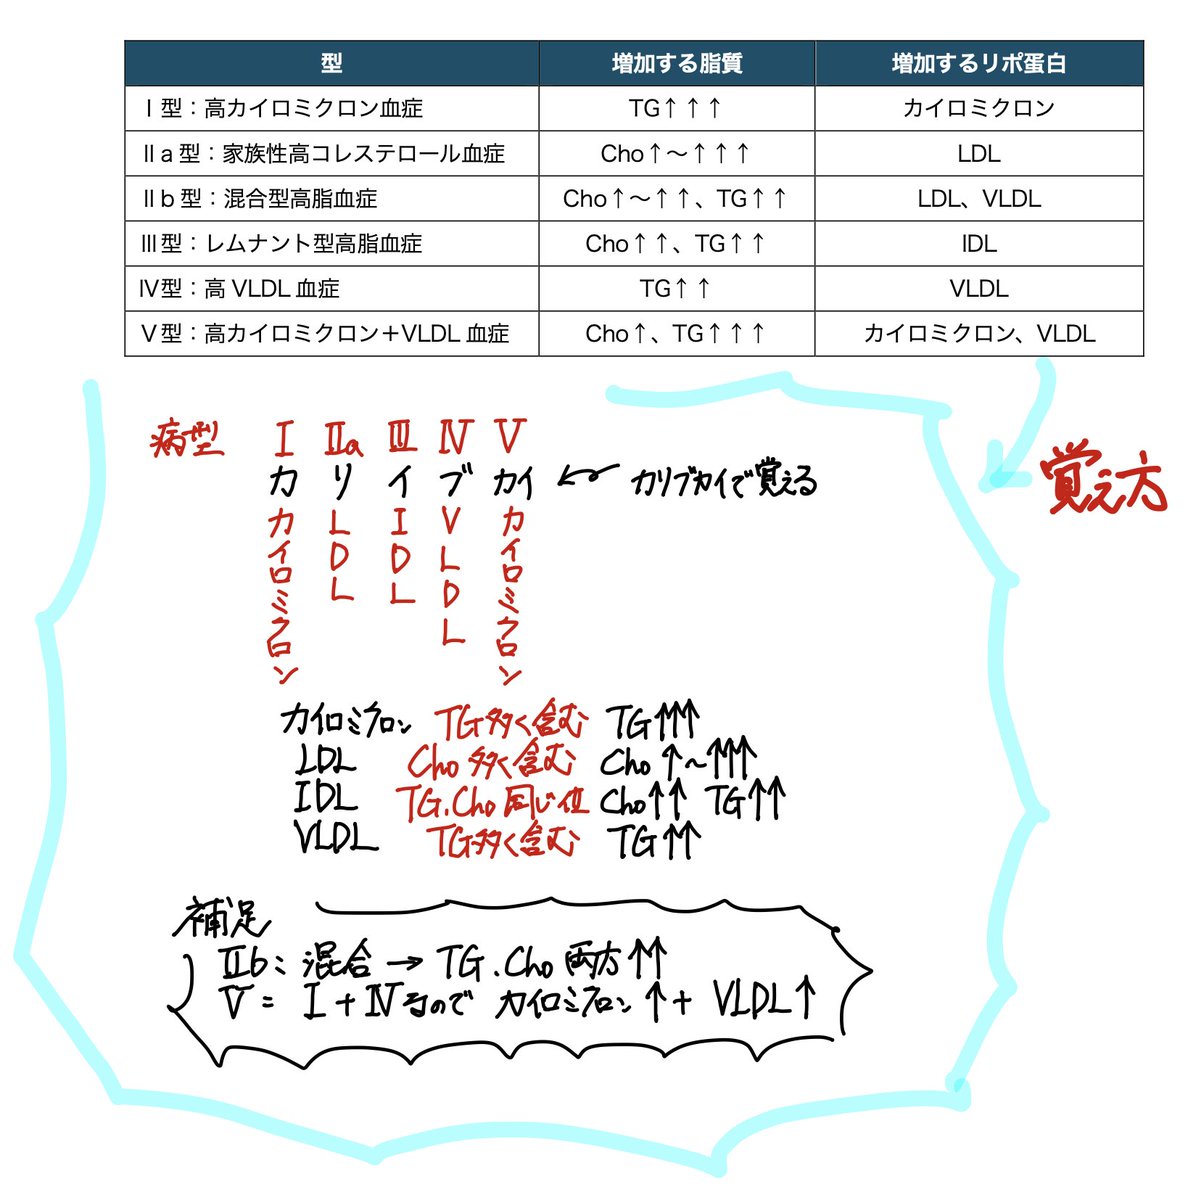 型 増加する脂質 増加するリポ蛋白
Ⅰ型：高カイロミクロン血症 TG↑↑↑ カイロミクロン
Ⅱa型：家族性高コレステロール血症 Cho↑～↑↑↑ LDL
Ⅱb型：混合型高脂血症 Cho↑～↑↑、TG↑↑ LDL、VLDL
Ⅲ型：レムナント型高脂血症 Cho↑↑、TG↑↑ IDL
Ⅳ型：高VLDL血症 TG↑↑ VLDL
Ⅴ型：高カイロミクロン＋VLDL血症 Cho↑、TG↑↑↑ カイロミクロン、VLDL
覚え方
病型 Ⅰ Ⅱa Ⅲ Ⅳ Ⅴ
カ リ イ ブ カイ ← カリブカイで覚える
カイロミクロン LDL IDL VLDL カイロミクロン
カイロミクロン TG多く含む TG↑↑↑
LDL Cho多く含む Cho↑～↑↑↑
IDL TG.Cho同じ位 Cho↑↑ TG↑↑
VLDL TG多く含む TG↑↑
補足
Ⅱb：混合→TG.Cho両方↑↑
Ⅴ＝Ⅰ+Ⅳなので カイロミクロン↑+ VLDL↑